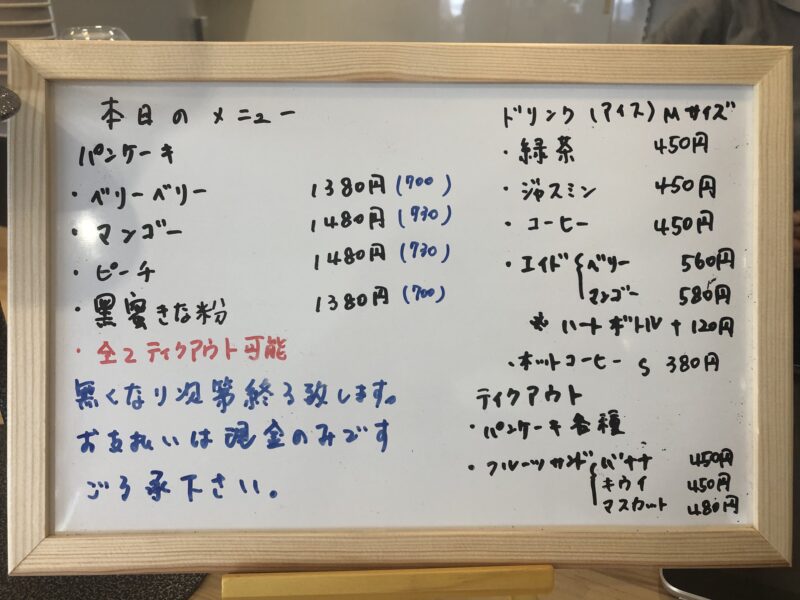 本日のメニュー
パンケーキ
・ベリーベリー 1380円(700)
・マンゴー 1480円(730)
・ピーチ 1480円(730)
・黒蜜きな粉 1380円(700)
・全てテイクアウト可能
無くなり次第終了致します。
お支払いは現金のみです
ご了承下さい。
ドリンク(アイス)Mサイズ
・緑茶 450円
・ジャスミン 450円
・コーヒー 450円
・エイド{ベリー 560円
マンゴー 580円
※ハートボトル+120円
・ホットコーヒー S 380円
テイクアウト
・パンケーキ各種
・フルーツサンド{バナナ 450円
キウイ 450円
マスカット 480円